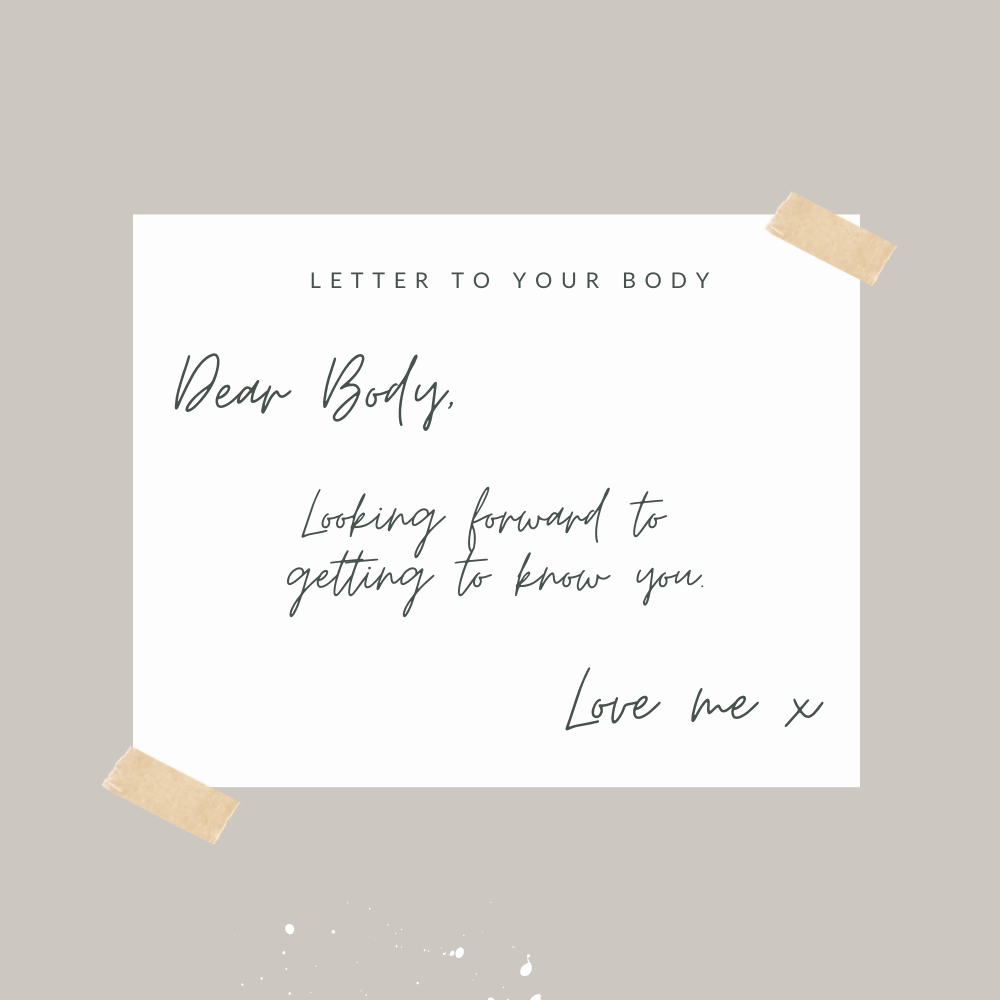 LETTER TO YOUR BODY
Dear Body,
Looking forward to
getting to know you.
Love me x